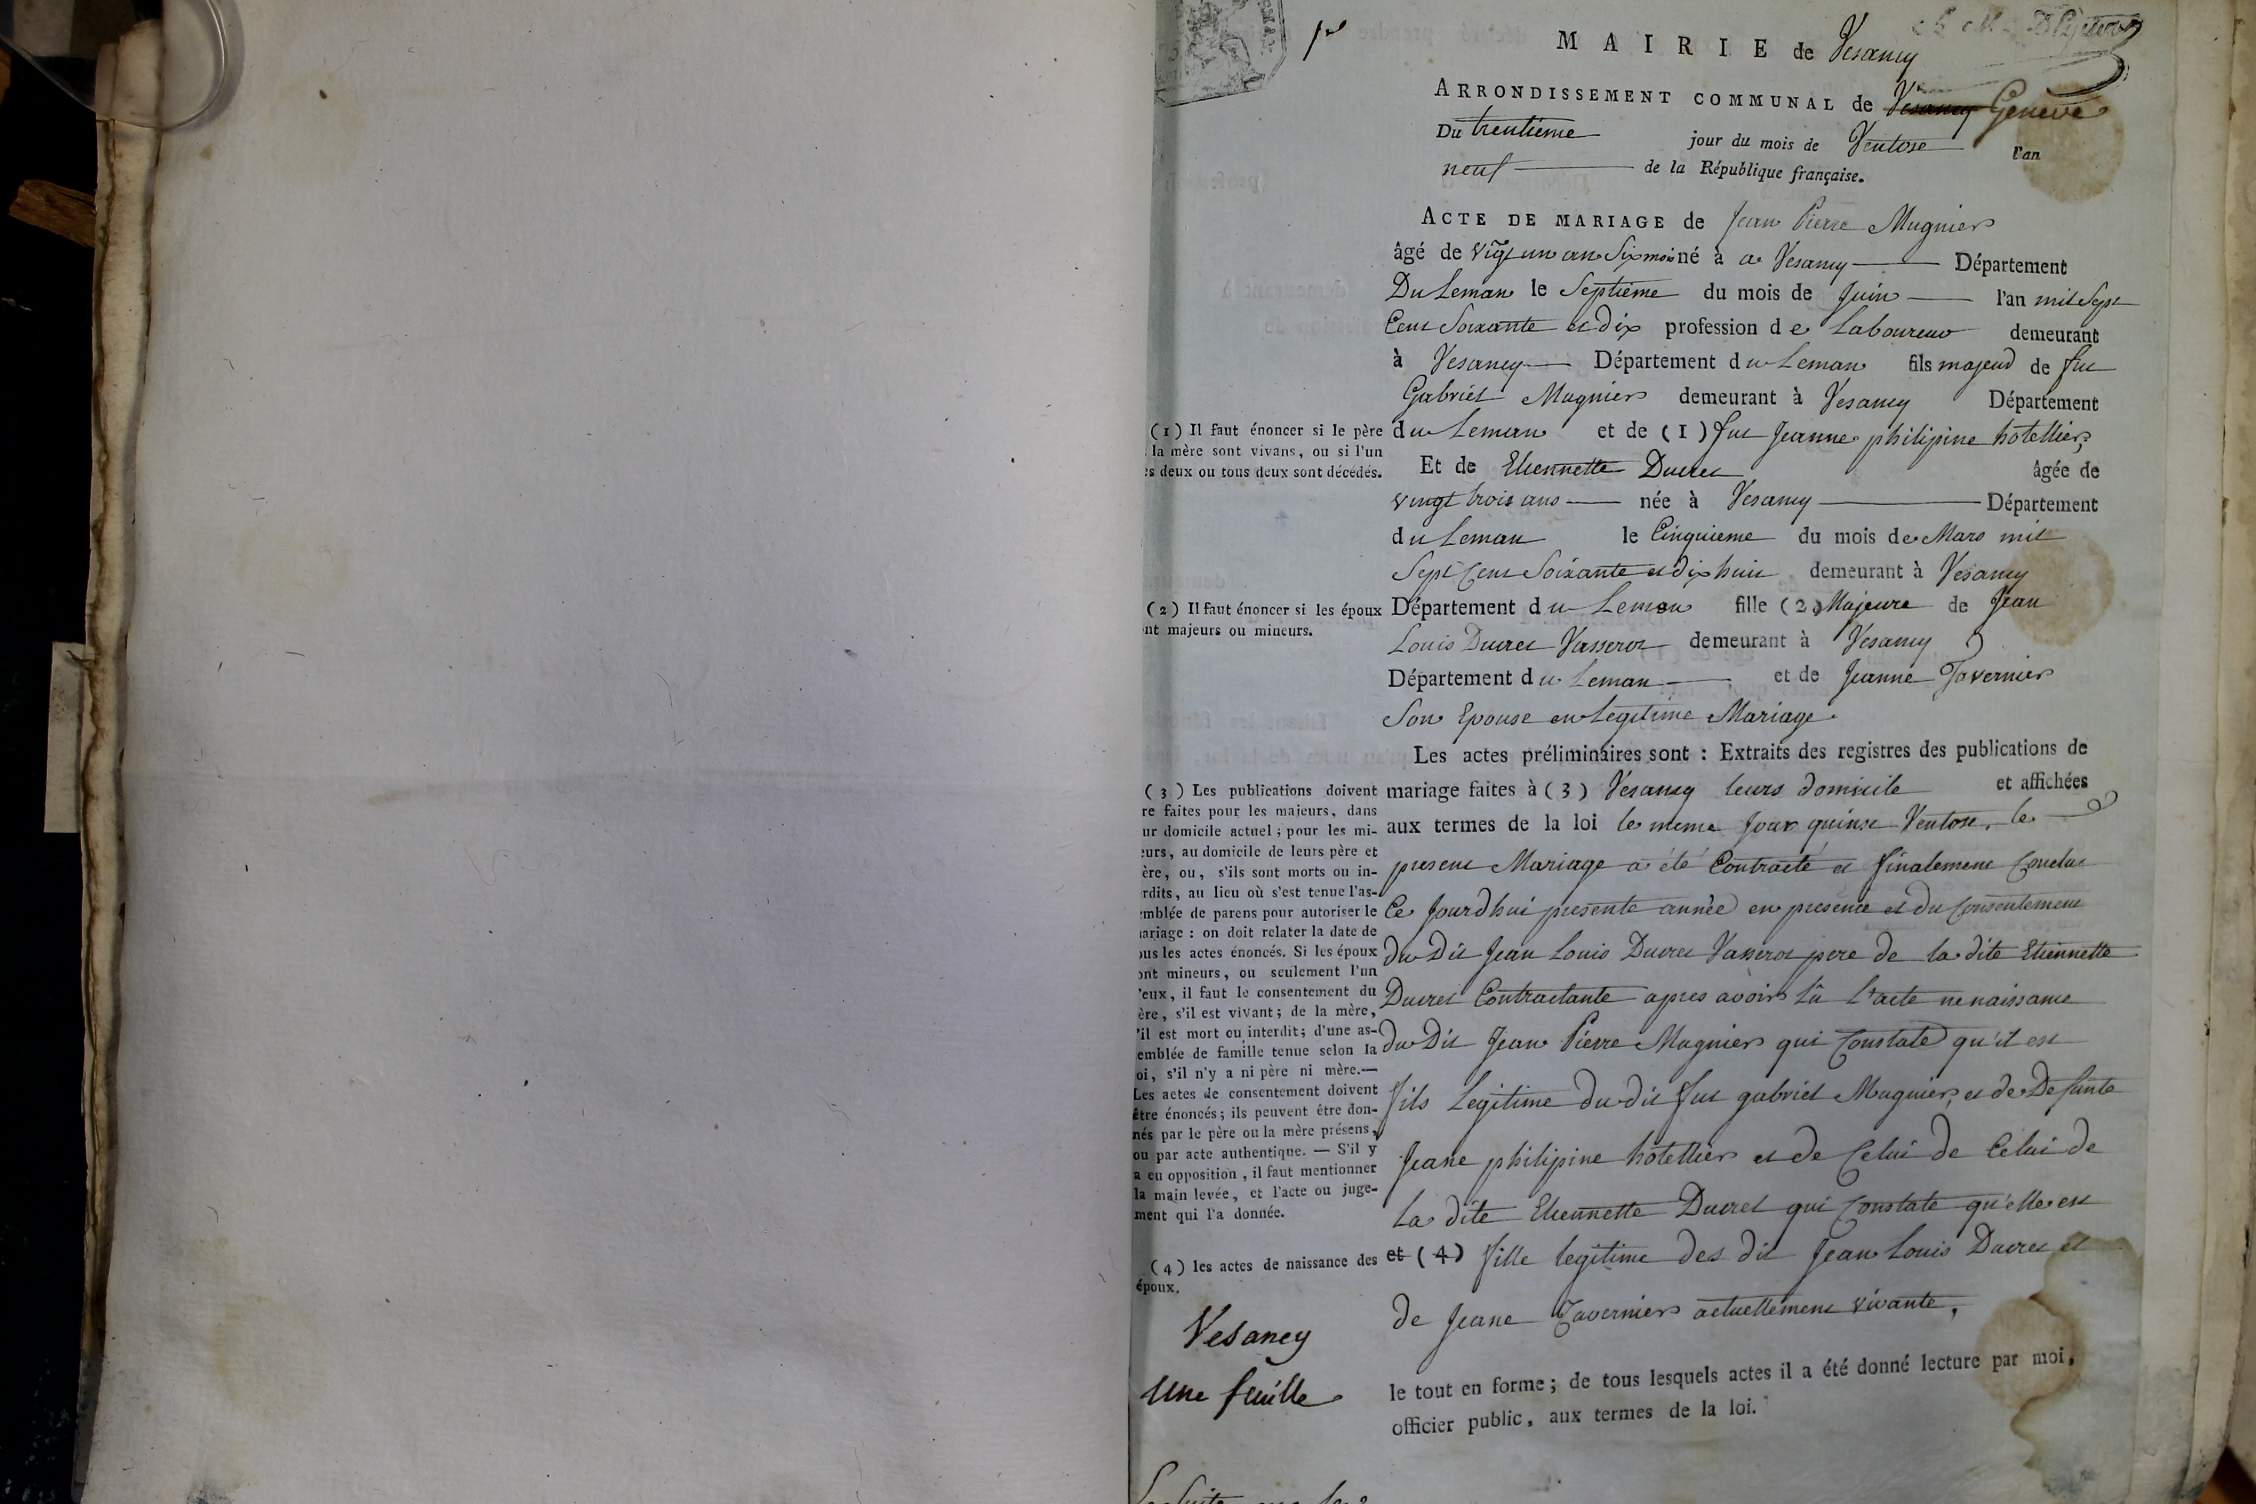 MAIRIE de Vesancy
ARRONDISSEMENT COMMUNAL de Vesancy Geneve
Du trentieme jour du mois de Ventose l'an
neuf de la République française.
ACTE DE MARIAGE de Jean Pierre Mugnier
âgé de vigt un an Six mois né à a Vesancy Département
Du Leman le Septieme du mois de Juin l'an mil Sept
Cent Soixante et dix profession de Laboureur demeurant
à Vesancy Département du Leman fils majeur de fut
Gabriel Mugnier demeurant à Vesancy Département
du Leman et de (1) fut Jeanne philipine hotellier,
Et de Etiennette Ducret âgée de
vingt trois ans née à Vesancy Département
du Leman le Cinquieme du mois de Mars mil
Sept Cent Soixante et dix huit demeurant à Vesancy
Département du Leman fille (2) Majeure de Jean
Louis Ducret Vasserot demeurant à Vesancy
Département du Leman et de Jeanne Tavernier
Son Epouse en Legitime Mariage.
Les actes préliminaires sont : Extraits des registres des publications de
mariage faites à (3) Vesancy leurs domicile et affichées
aux termes de la loi le meme Jour quinse Ventose, le
present Mariage a été Contracté et finalement Conclue
Ce Jourdhui presente année en presence et du Consentement
du Dit Jean Louis Ducret Vasserot pere de la dite Etiennette
Ducret Contractante apres avoir lû l'acte ne naissance
du Dit Jean Pierre Mugnier qui Constate qu'il est
fils Legitime du dit fut gabriel Mugnier, et de Defunte
Jeane philipine hôtellier et de Celui de Celui de
La dite Etiennette Ducret qui Constate qu'elle est
et (4) fille legitime des dit Jean Louis Ducret et
de Jeane Tavernier actuellement vivante,
le tout en forme ; de tous lesquels actes il a été donné lecture par moi,
officier public, aux termes de la loi.
(1) Il faut énoncer si le père
la mère sont vivans, ou si l'un
es deux ou tous deux sont décédés.
(2) Il faut énoncer si les époux
nt majeurs ou mineurs.
(3) Les publications doivent
re faites pour les majeurs, dans
ur domicile actuel ; pour les mi-
eurs, au domicile de leurs père et
ère, ou, s'ils sont morts ou in-
rdits, au lieu où s'est tenue l'as-
emblée de parens pour autoriser le
ariage : on doit relater la date de
ous les actes énoncés. Si les époux
ont mineurs, ou seulement l'un
'eux, il faut le consentement du
ère, s'il est vivant ; de la mère,
'il est mort ou interdit ; d'une as-
emblée de famille tenue selon la
oi, s'il n'y a ni père ni mère.—
Les actes de consentement doivent
être énoncés ; ils peuvent être don-
nés par le père ou la mère présens,
ou par acte authentique. — S'il y
a eu opposition, il faut mentionner
la main levée, et l'acte ou juge-
ment qui l'a donnée.
(4) les actes de naissance des
époux.
Vesancy
Une feuille